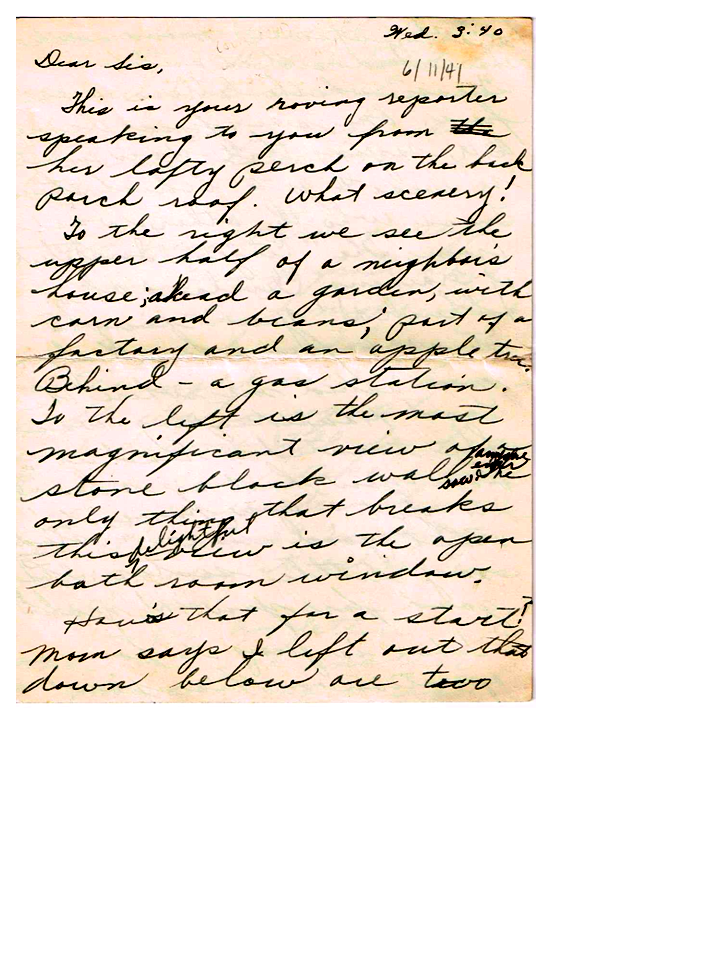 Wed. 3:40
6/11/41
Dear Sis,
This is your roving reporter
speaking to you from the
her lofty perch on the back
porch roof. What scenery!
To the right we see the
upper half of a neighbor's
house; ahead a garden, with
corn and beans; part of a
factory and an apple tree.
Behind - a gas station.
To the left is the most
magnificant view of a
stone block wall anyone ever saw. The
only thing that breaks
this delightful view is the open
bath room window.
How's that for a start?
Mom says I left out that
down below are two